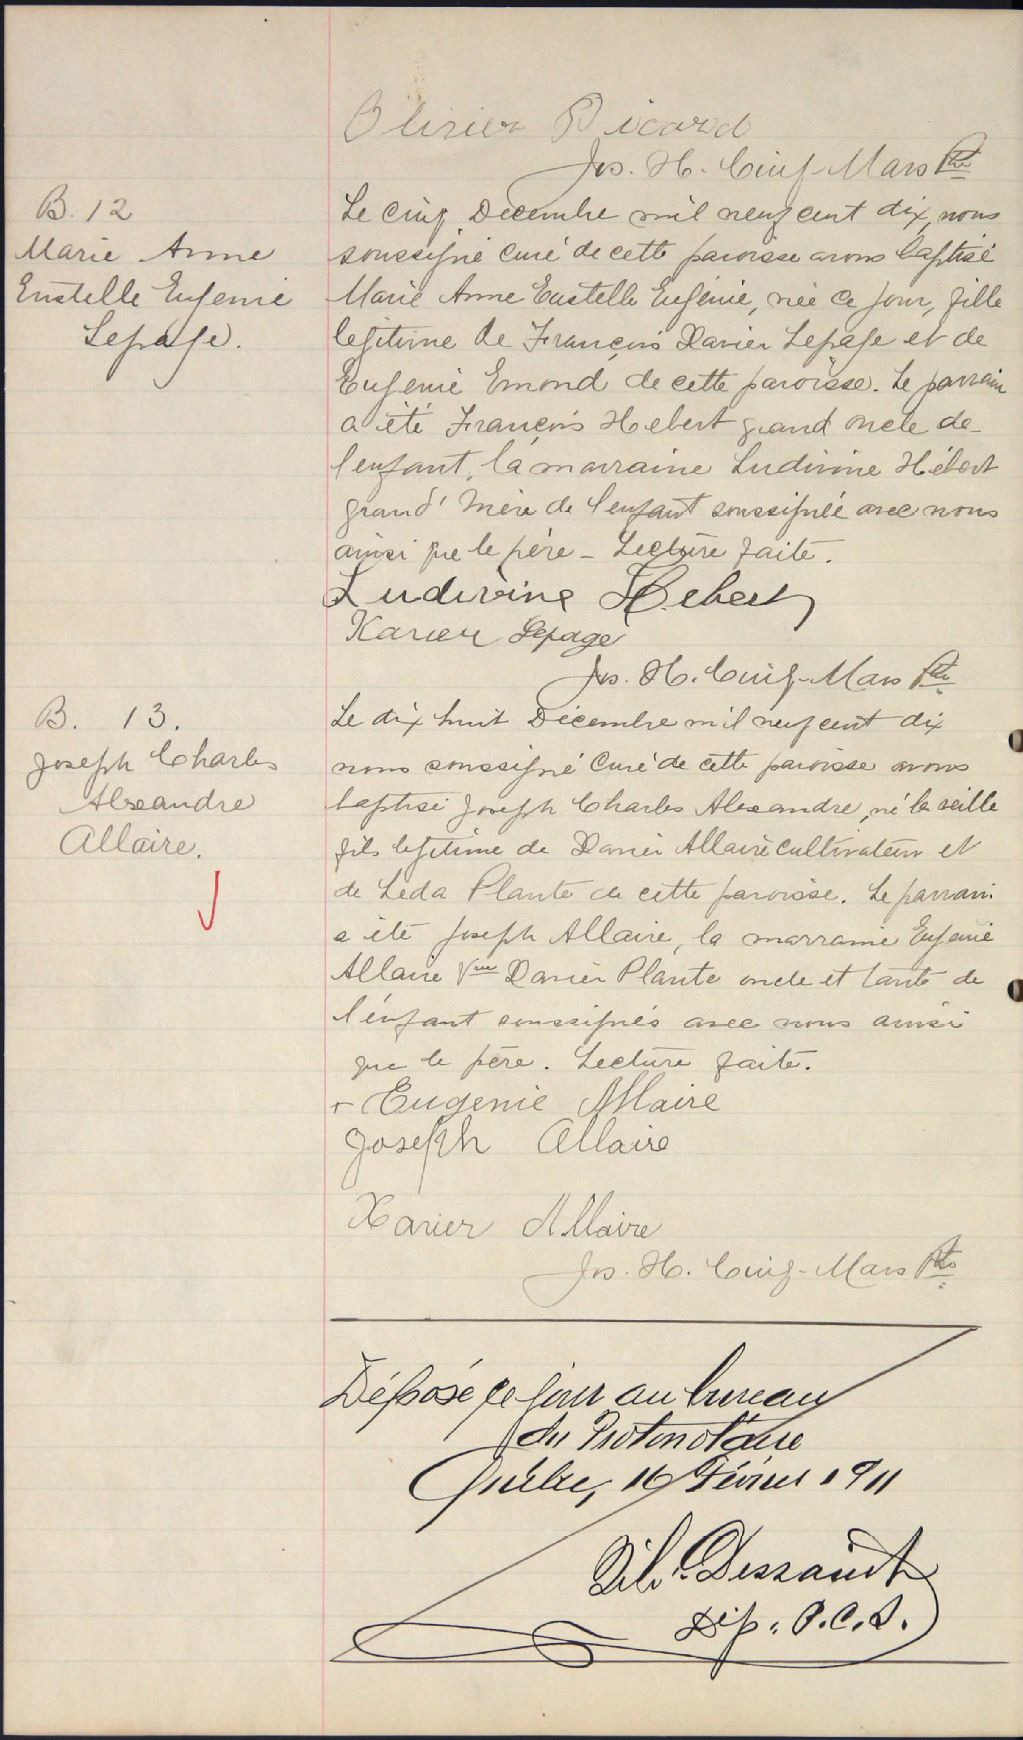 Olivier Picard
Jos. H. Cinq-Mars Ptre
B. 12
Marie Anne
Eustelle Eugenie
Lepage.
Le cinq Decembre mil neuf cent dix, nous
soussigné curé de cette paroisse avons baptisé
Marie Anne Eustelle Eugénie, née ce jour, fille
legitime de François Xavier Lepage et de
Eugenie Emond de cette paroisse. Le parrain
a été François Hebert grand oncle de
l'enfant, la marraine Ludivine Hébert
grand' mère de l'enfant soussignée avec nous
ainsi que le père - Lecture faite.
Ludivine Hebert
Xavier Lepage
Jos. H. Cinq-Mars Ptre
B. 13.
Joseph Charles
Alexandre
Allaire.
Le dix huit Décembre mil neuf cent dix
nous soussigné Curé de cette paroisse avons
baptisé Joseph Charles Alexandre, né la veille
fils legitime de Xavier Allaire cultivateur et
de Leda Plante de cette paroisse. Le parrain
a été Joseph Allaire, la marraine Eugenie
Allaire Vve Xavier Plante oncle et tante de
l'enfant soussignés avec nous ainsi
que le père. Lecture faite.
+ Eugenie Allaire
Joseph Allaire
Xavier Allaire
Jos. H. Cinq-Mars Ptre
Déposé ce jour au bureau
du Protonotaire
Québec, 16 Février 1911
Dessaint
Dép. P.C.S.